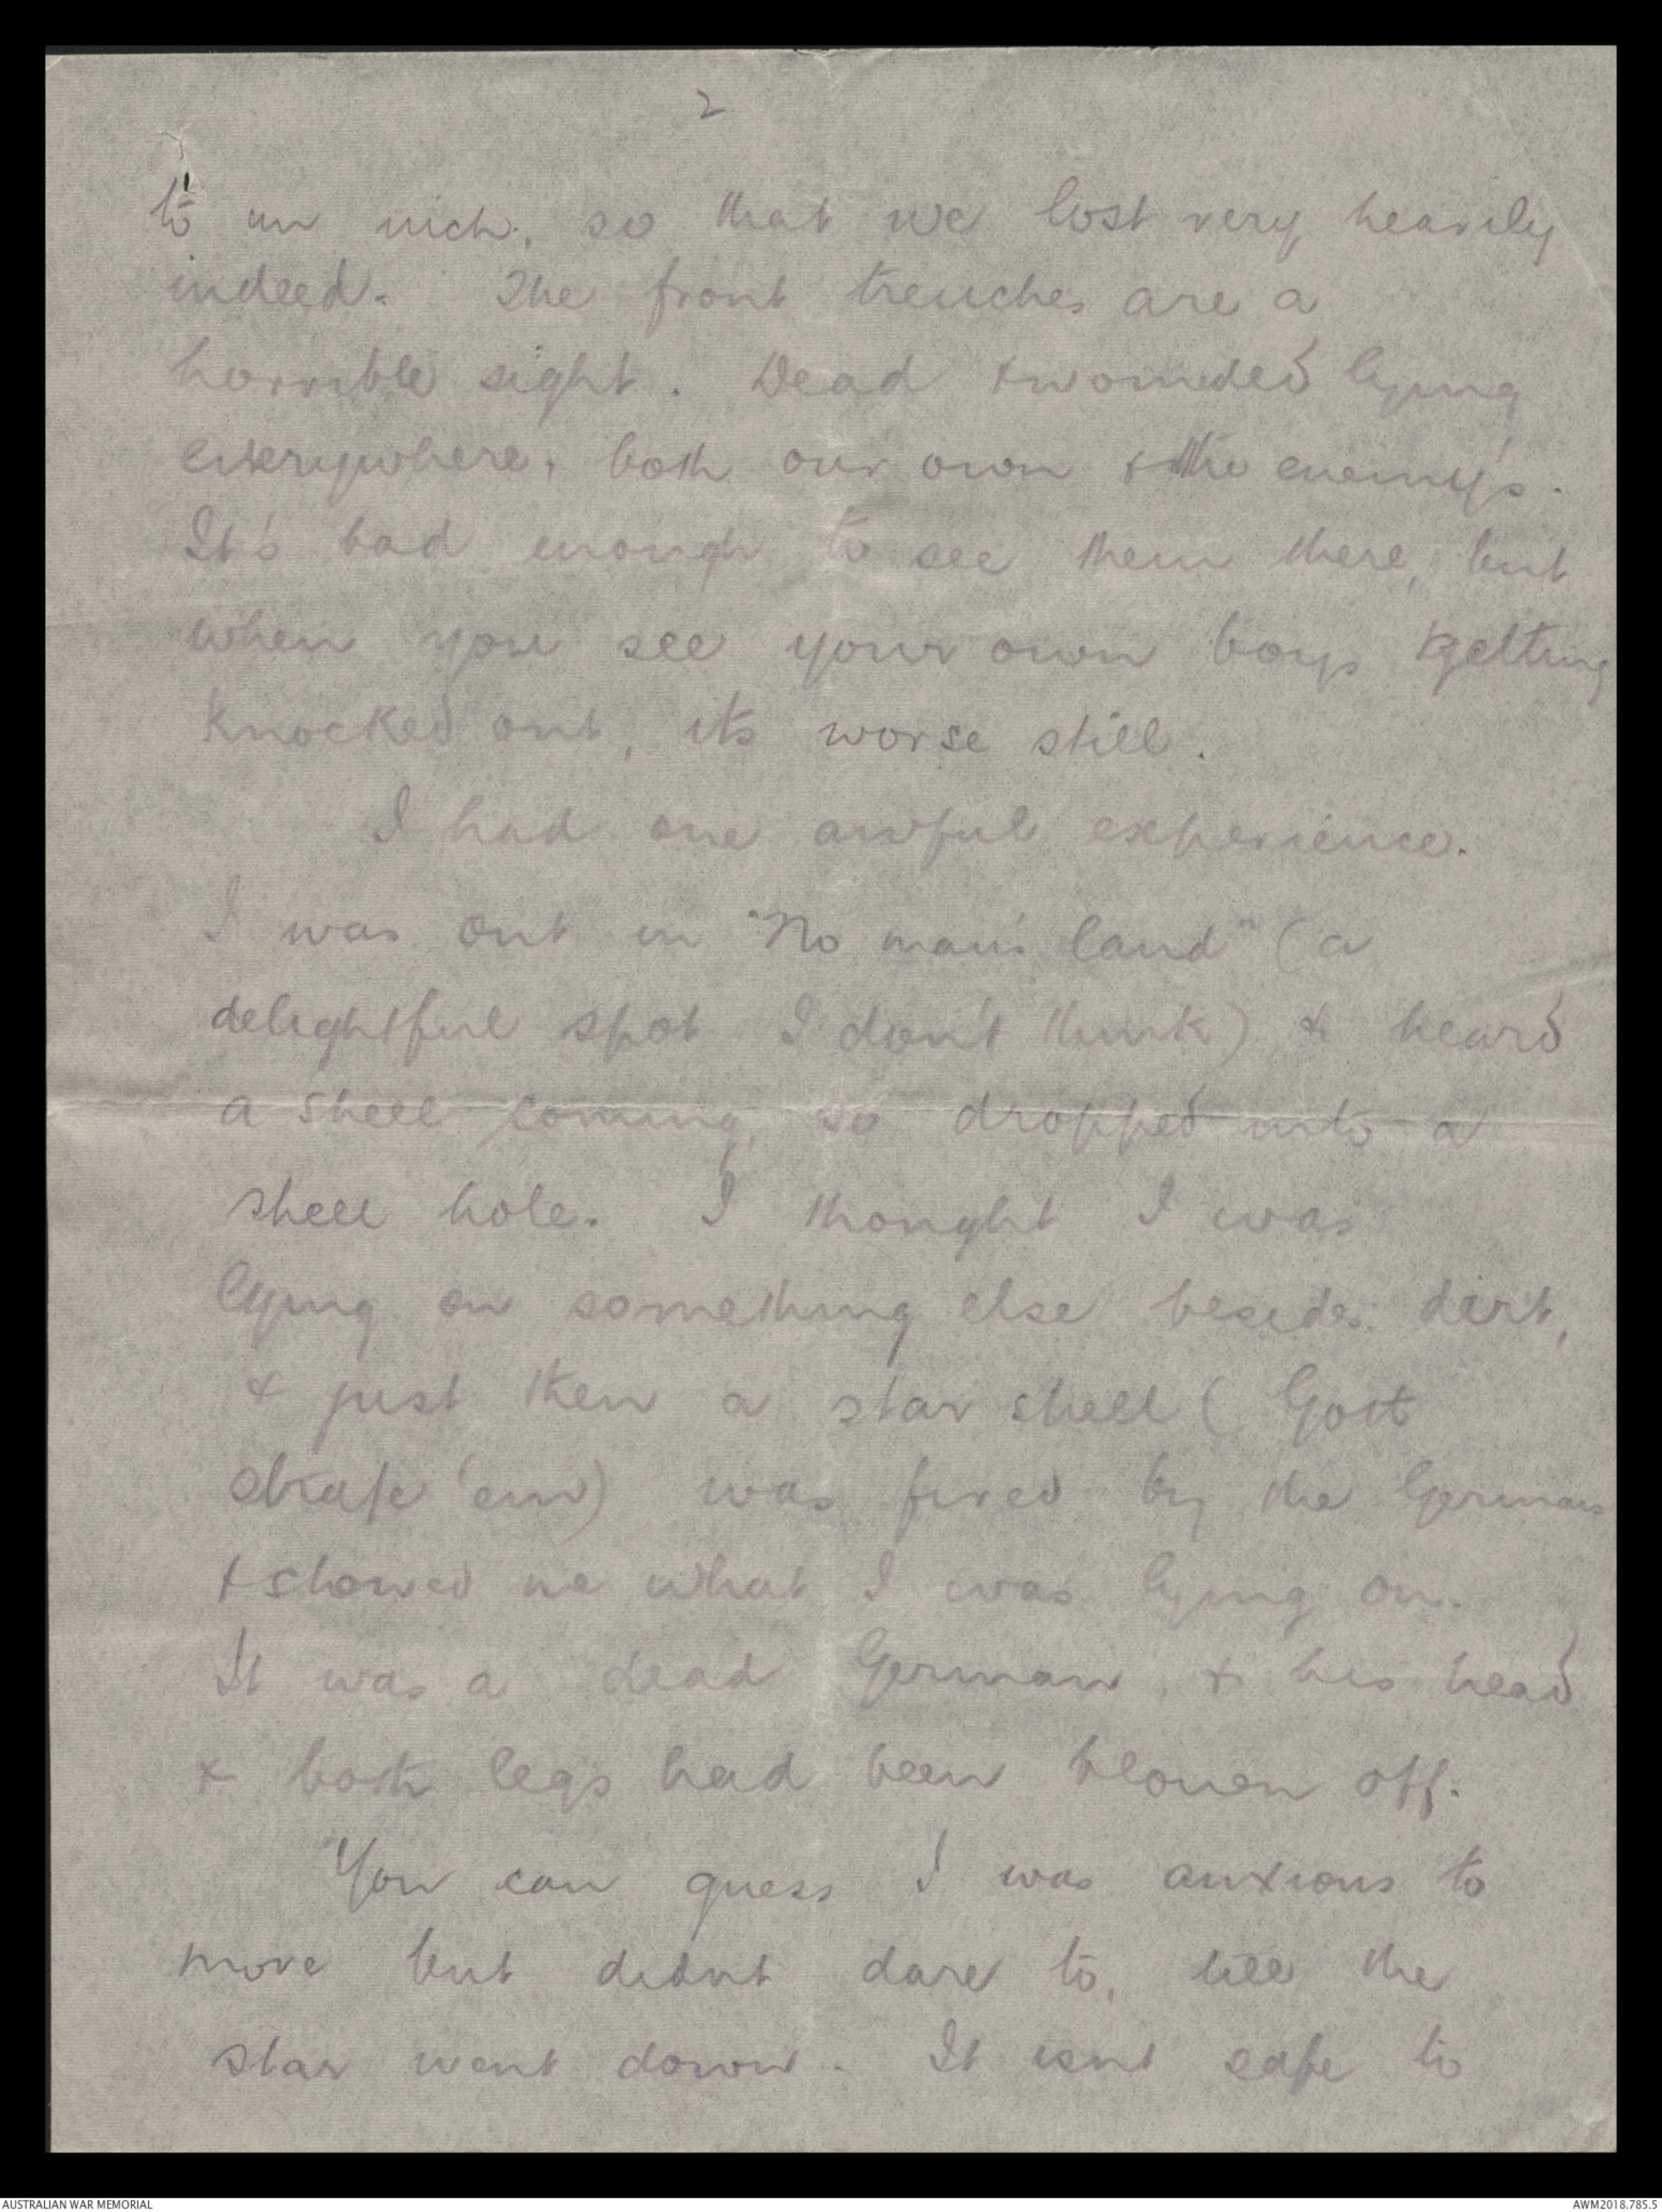 2
to an inch, so that we lost very heavily
indeed. The front trenches are a
horrible sight. Dead & wounded lying
everywhere, both our own & the enemy's.
It's bad enough to see them there, but
when you see your own boys getting
knocked out, it's worse still.
I had one awful experience.
I was out in "No man's land" (a
delightful spot I don't think) & heard
a shell coming, so dropped into a
shell hole. I thought I was
lying on something else besides dirt,
& just then a star shell (Gott
strafe 'em) was fired by the Germans
& showed me what I was lying on.
It was a dead German, & his head
& both legs had been blown off.
You can guess I was anxious to
move but didnt dare to, till the
star went down. It isnt safe to
AUSTRALIAN WAR MEMORIAL
AWM2018.785.5